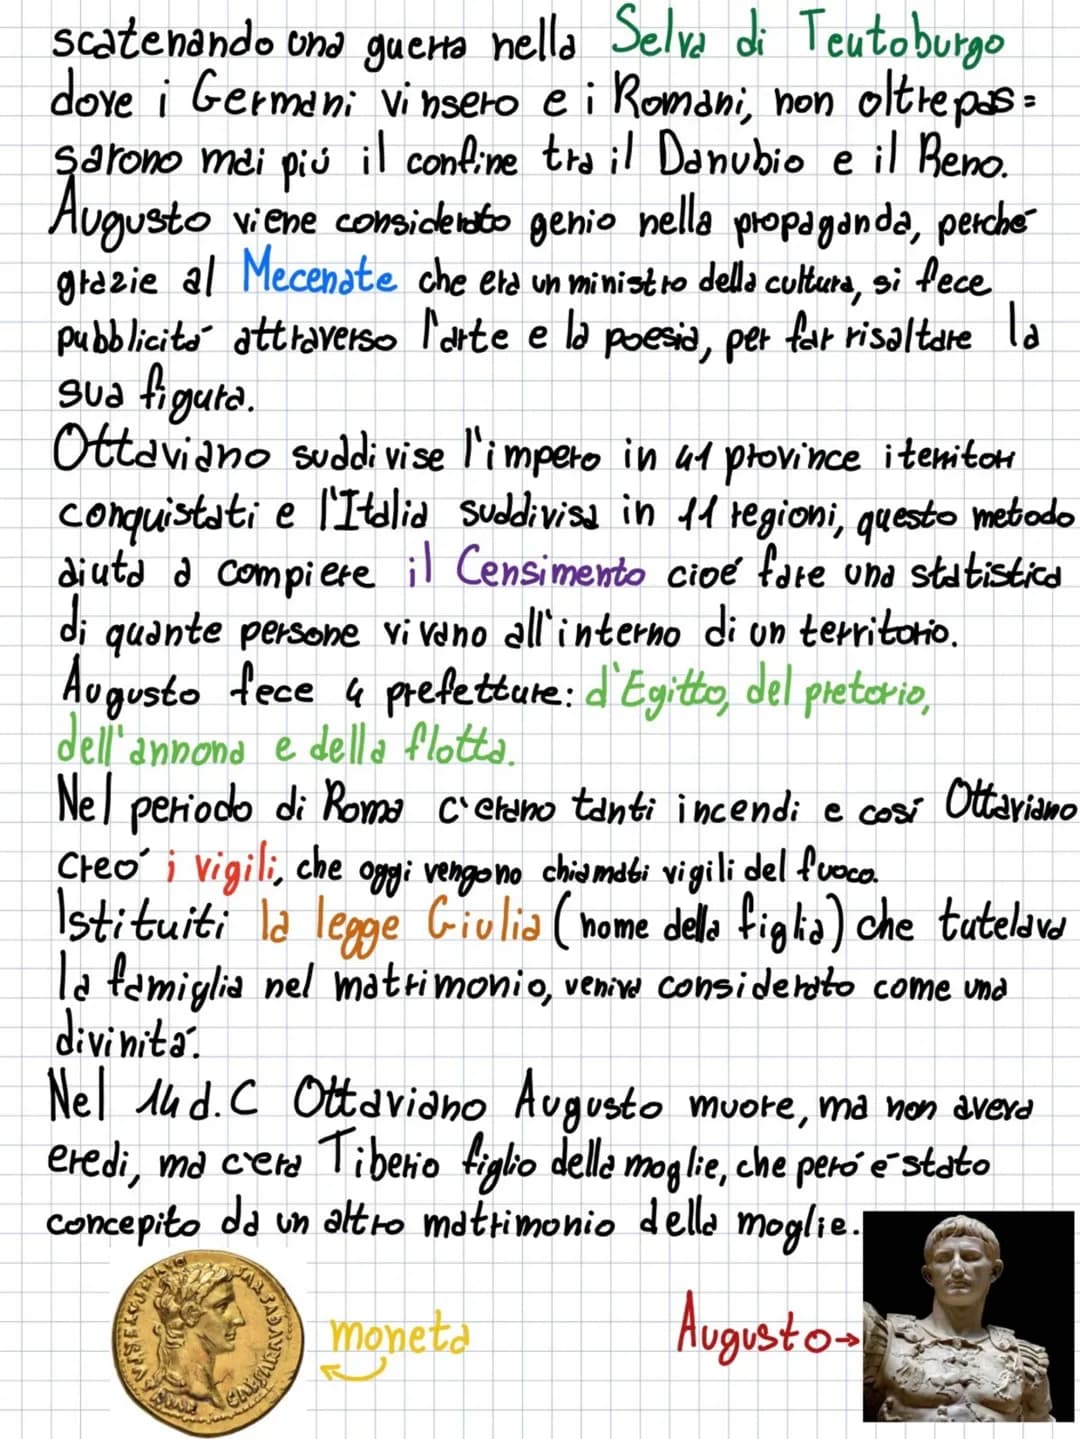 scatenando una guerra nella Selva di Teutoburgo
dove i Germani vinsero e i Romani, non oltrepas=
sarono mai più il confine tra il Danubio e il Reno.
Augusto viene considerato genio nella propaganda, perché
grazie al Mecenate che era un ministro della cultura, si fece
pubblicità attraverso l'arte e la poesia, per far risaltare la
sua figura.
Ottaviano suddivise l'impero in 41 province i territori
conquistati e l'Italia suddivisa in 11 regioni, questo metodo
aiuta a compiere il Censimento cioé fare una statistica
di quante persone vivano all'interno di un territorio.
Augusto fece 4 prefetture: d'Egitto, del pretorio,
dell'annona e della flotta.
Nel periodo di Roma c'erano tanti incendi e così Ottaviano
creó i vigili, che oggi vengono chiamati vigili del fuoco.
Istituiti la legge Giulia (nome della figlia) che tutelava
la famiglia nel matrimonio, veniva considerato come una
divinità.
Nel 14 d.C Ottaviano Augusto muore, ma non aveva
eredi, ma c'era Tiberio figlio della moglie, che peró é stato
concepito da un altro matrimonio della moglie.
moneta
Augusto→